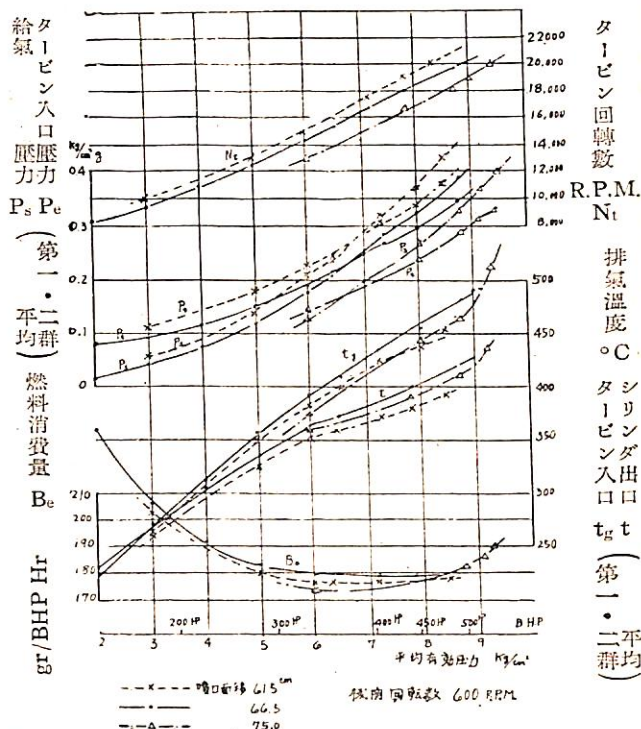 給氣
タービン入口
壓力
壓力
Ps Pe
(第一・二群平均)
燃料消費量
Be
gr/BHP Hr
タービン回轉數
R.P.M.
Nt
排氣溫度
°C
シリンダ出口
タービン入口
tg t
(第一・二群平均)
kg/cm²g
0.4
0.3
0.2
0.1
0
210
200
190
180
170
22000
20,000
18,000
16,000
14,000
12,000
10,000
8,000
500
450
400
350
300
250
Nt
Ps
Pe
Ps
Pe
tg
t
Be
200 HP
300 HP
400 HP
450 HP
500 HP
B.H.P
2
3
4
5
6
7
8
9
平均有効圧力 Kg/cm²
噴口面積 61.5 cm
66.5
75.0
機関回転数 600 R.P.M